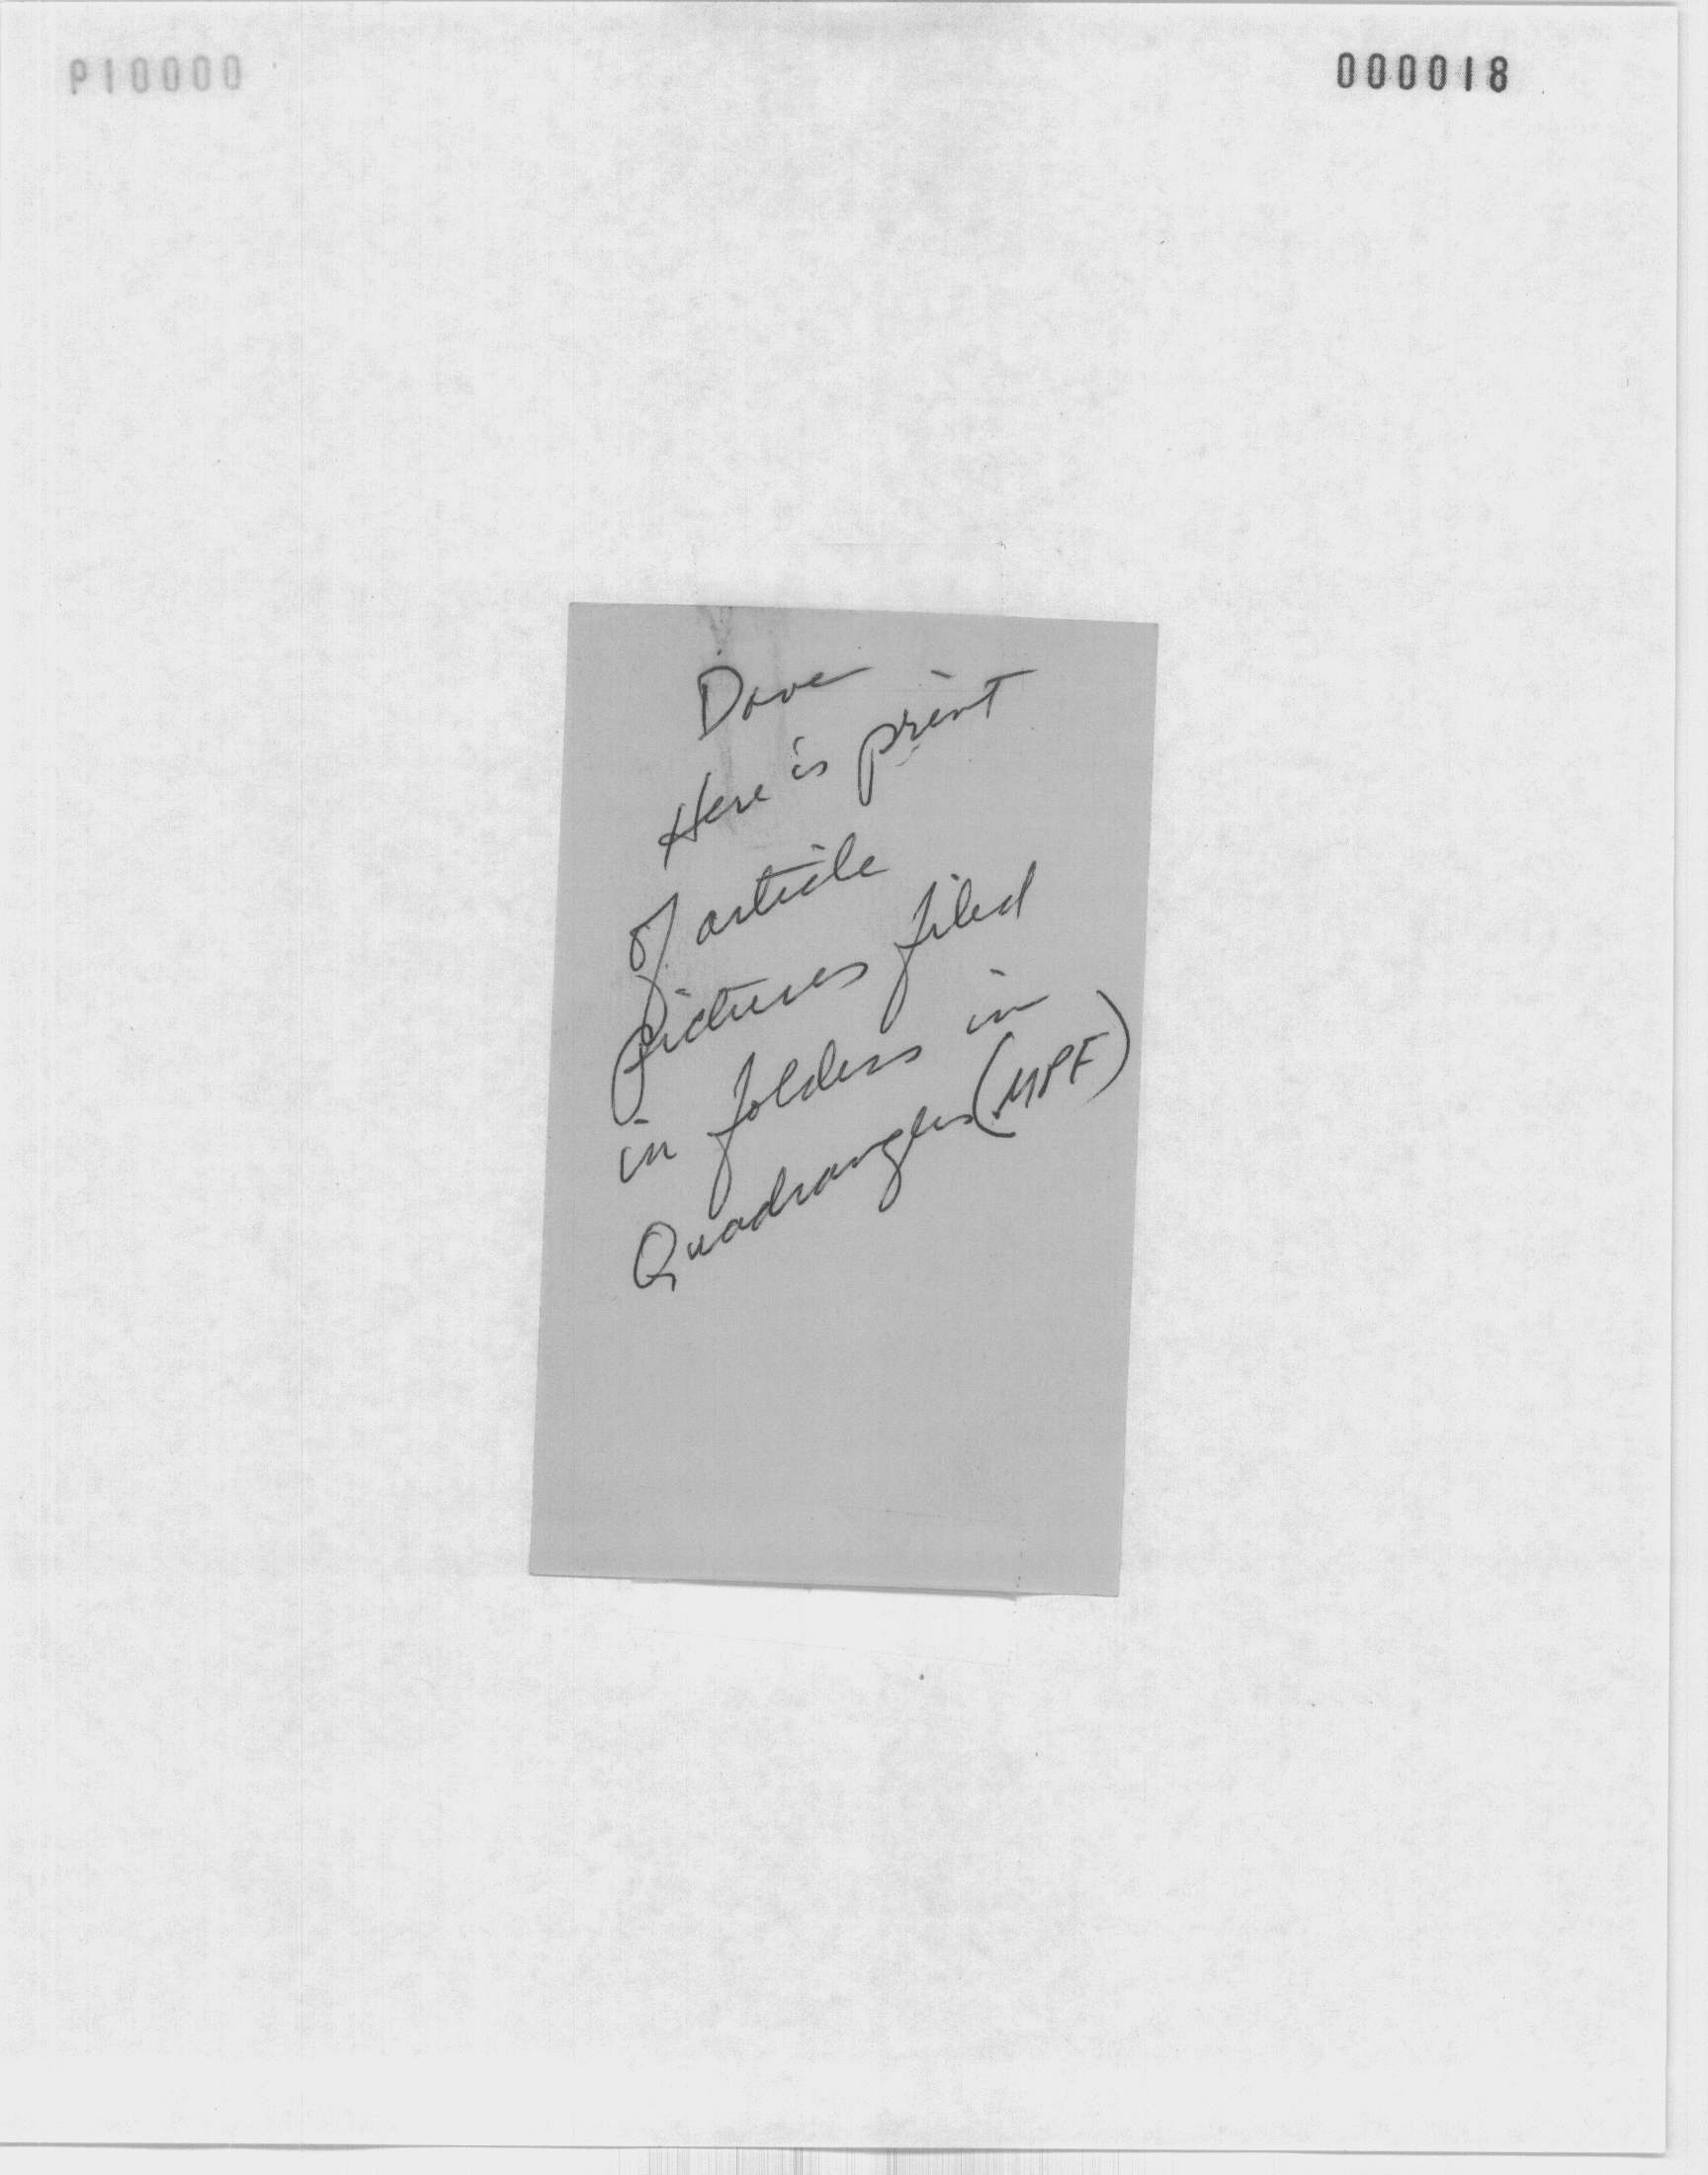 000018
Dave
Here is print
of article
pictures filed
in folders in
Quadrangles (MPF)